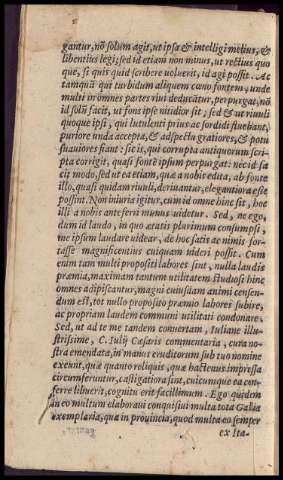 gantur, nō solum agit, ut ipsæ & intelligi melius, &
libentius legi; sed id etiam non minus, ut rectius quo
que, si quis quid scribere uoluerit, id agi possit. Ac
tamquā qui turbidum aliquem cano fontem, unde
multi in omnes partes riui deducātur, perpurgat, nō
id solū facit, ut fons ipse nitidior sit; sed & ut riuuli
quoque ipsi, qui lutulenti prius ac sordidi fluebant,
puriore unda accepta, & adspectu gratiores, & potu
suauiores fiant: sic is, qui corrupta antiquorum scri-
pta corrigit, quasi fontē ipsum perpurgat: nec id fa
cit modo, sed ut ea etiam, quæ a nobis edita, ab fonte
illo, quasi quidam riuuli, deriuantur, elegantiora esse
possint. Non iniuria igitur, cum id omne hinc sit, hoc
illi a nobis anteferri munus uidetur. Sed, ne ego,
dum id laudo, in quo ætatis plurimum consumpsi,
me ipsum laudare uidear, de hoc satis ac nimis for-
tasse magnificentius cuiquam uideri possit. Cum
enim tam multi propositi labores sint, nulla laudis
præmia, maximam tantum utilitatem studiosi hinc
omnes adipiscantur, magni cuiusdam animi censen-
dum est, tot nullo proposito præmio labores subire,
ac propriam laudem communi utilitati condonare.
Sed, ut ad te me tandem conuertam, Iuliane illu-
strissime, C. Iulij Cæsaris commentaria, cura no-
stra emendata, in manus eruditorum sub tuo nomine
exeunt, quæ quanto reliquis, quæ hactenus impressa
circumferuntur, castigatiora sint, cuicumque ea con-
ferre libuerit, cognitu erit facillimum. Ego quidem
in eo multum elaboraui conquisiui multa tota Gallia
exemplaria, quæ in prouincia, quod multa eo semper
ex Ita-